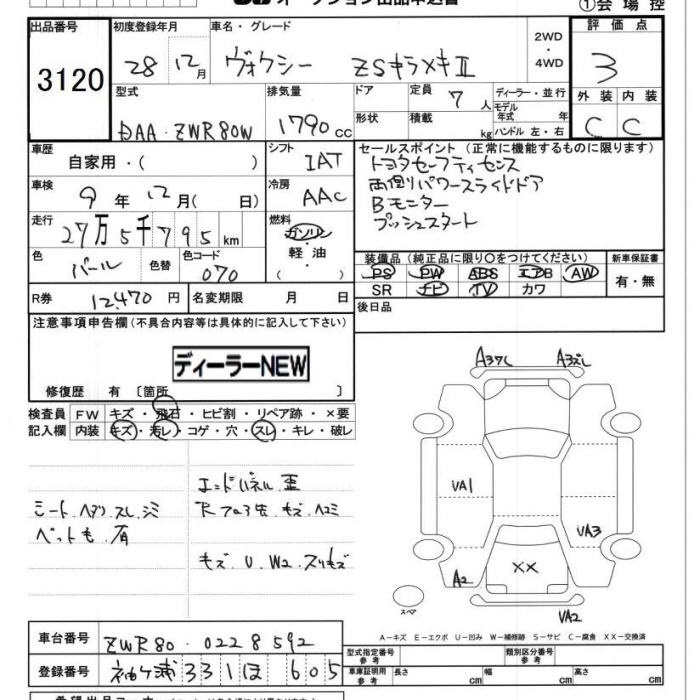 オークション出品申込書
①会場控
出品番号
3120
初度登録年月
28年12月
車名・グレード
ヴォクシー ZSキラメキⅡ
2WD・4WD
評価点
3
型式
DAA-ZWR80W
排気量
1790cc
ドア
形状
定員
7人
積載
kg
ディーラー・並行
モデル年式 年
ハンドル 左・右
外装 内装
C C
車歴
自家用・( )
シフト
IAT
セールスポイント(正常に機能するものに限ります)
トヨタセーフティセンス
両側パワースライドドア
Bモニター
プッシュスタート
車検
9年12月(日)
冷房
AAC
走行
27万5千795km
燃料
ガソリン
軽・油
( )
色
パール
色替
色コード
070
装備品(純正品に限り○をつけてください)
PS PW ABS エアB AW
SR ナビ TV カワ
新車保証書
有・無
R券 12,470円
名変期限 月 日
後日品
注意事項申告欄(不具合内容等は具体的に記入して下さい)
ディーラーNEW
修復歴 有 〔箇所 〕
検査員記入欄
FW キズ・飛石・ヒビ割・リペア跡・×要
内装 キズ・汚レ・コゲ・穴・スレ・キレ・破レ
シート.ヘタリ.スレ.シミ
ペットも.有
エンドパネル.歪
Rフロア歪.キズ.ヘコミ
キズ.U.W2.スリキズ
A3ワレ A3ズレ
UA1
UA3
A2
××
UA2
スペア
A-キズ E-エクボ U-凹み W-補修跡 S-サビ C-腐食 XX-交換済
車台番号
ZWR80-0228592
登録番号
袖ケ浦331ほ605
型式指定番号 参考
類別区分番号 参考
車庫証明用 参考 長さ 幅 高さ
cm cm cm